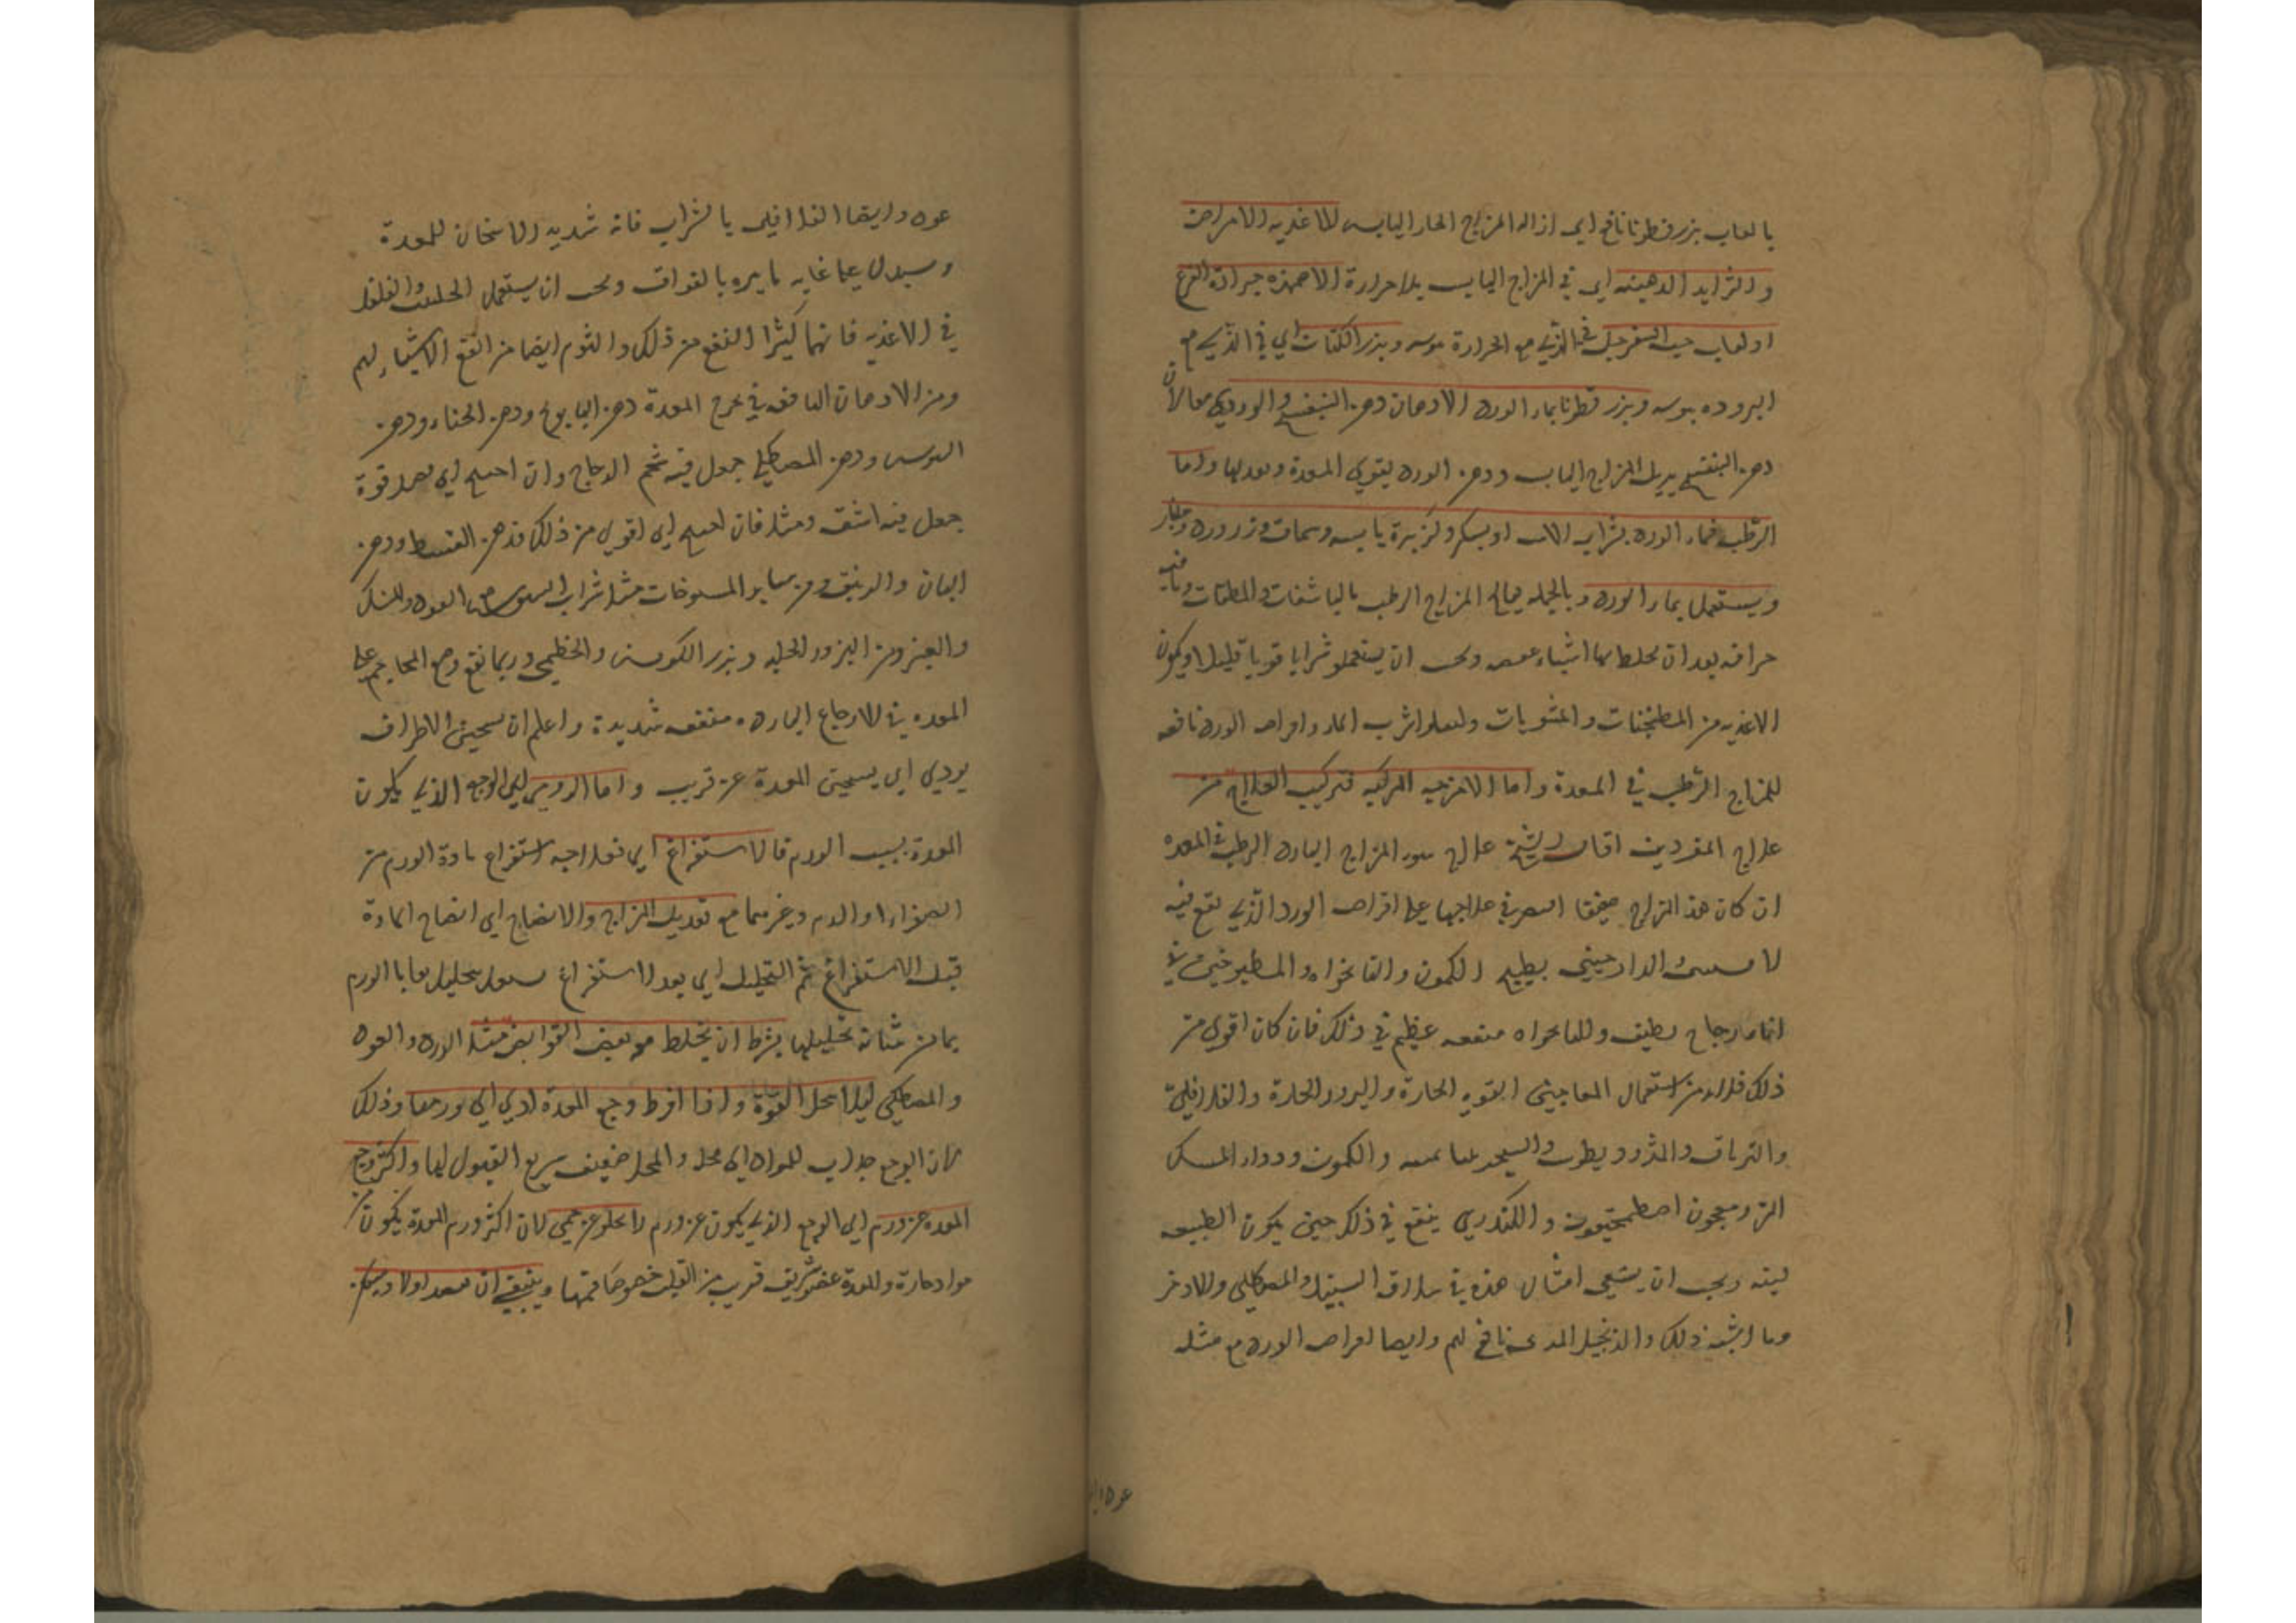 بالعاب بزرقطونا نافع اي ازاله المزاج الحار اليابس للاغذيه والامراض
والثرايد الدهنيه اي في المزاج اليابس بلا حرارة الاضمده جرادة القرع
اولعاب حب السفرجل في الذي مع الحرارة يبوسه وبزر الكتان اي في الذي مع
البروده يبوسه وبزر قطونا بماء الورد الادهان دهن البنفسج والوردي معا لان
دهن البنفسج يزيل المزاج اليابس ودهن الورد يقوي المعدة ويعدلها واما
الرطب فماء الورد بشراب الاس او بسكر وكزبرة يابسه وسماق وزر ورد وجلنار
ويستعمل بماء الورد وبالجمله يعالج المزاج الرطب بالناشفات والمطفيات وما فيه
حرافه بعد ان يخلط بها اشياء عفصه ويجب ان يستعملو شرابا قويا قليلا ويكون
الاغذيه من المطجنات والمشويات وليقللوا شرب الماء واقراص الورد نافعه
للمزاج الرطب في المعدة واما الامزجه المركبه فتركيب العلاج من
علاج المفردين اقال الشيخ علاج سوء المزاج البارد الرطب في المعده
ان كان هذ المزاج خفيفا اقتصر في علاجها على اقراص الورد الذي يقع فيه
الافسنتين الدارصيني بطبيخ الكمون والنانخواه والمطبوخين في
اناء زجاج نظيف وللنانخواه منفعه عظيم في ذلك فان كان اقوى من
ذلك فلابد من استعمال المعاجين القويه الحارة والبزور الحارة والفلافلي
والترياق والمثروديطوس والكمون ودواء المسك
المر ومعجون اصطمخيقون والكندري ينفع في ذلك حين يكون الطبيعه
لينه ويجب ان يسقي امثال هذه في سلاقه السنبل والمصطكي والاذخر
وما اشبه ذلك والزنجبيل المربى نافع لهم وايضا اقراص الورد مع مثله
عود ا
عود وايضا الفلافلي بالشراب فانه شديد الاسخان للمعدة
ويستدل على غايه تاثيره بالفواق ويجب ان يستعمل الحلتيت والفلفل
في الاغذيه فانهما كثيرا النفع من ذلك والثوم ايضا من انفع الاشياء لهم
ومن الادهان النافعه في مرخ المعدة دهن البابونج ودهن الحناء ودهن
السوسن ودهن المصطكي جعل فيه شحم الدجاج وان احتيج الى فضل قوة
جعل فيه اشق ومقل فان احتيج الى اقوى من ذلك فدهن القسط ودهن
البان والزنبق ومن ساير المسوحات مثل شراب السوسن مع العود والمسك
والعنبر ومن البزور الحلبه وبزر الكرفس والخطمي وربما نفع وضع المحاجم على
المعده في الاوجاع البارده منفعه شديدة واعلم ان تسخين الاطراف
يودي الى تسخين المعدة عن قريب واما الورمي اي الوجع الذي يكون
المعدة بسبب الورم فالاستفراغ اي فعلاجه استفراغ مادة الورم من
الصفراء او الدم وغيرهما مع تعديل المزاج والانضاج اي انضاج المادة
قبل الاستفراغ ثم التحليل اي بعد الاستفراغ يستعمل تحليل بقايا الورم
بما من شانه تحليلها بشرط ان يخلط مع بعض القوابض مثل الورد والعود
والمصطكي ليلا تحل القوة واذا افرط وجع المعدة ادي الى ورمها وذلك
لان الوجع جذاب للمواد الى محله والمحل ضعيف سريع القبول لها واكثر وجع
المعده عن ورم اي الوجع الذي يكون عن ورم لا يخلو عن حمي لان اكثر ورم المعدة يكون عن
مواد حارة والمعدة عضو شريف قريب من القلب خصوصا فمها وينبغي ان يفصد اولا ويسكن